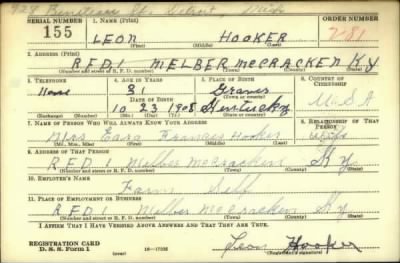 928 Beniteau St. Detroit, Mich
SERIAL NUMBER 1. NAME (Print) ORDER NUMBER
155 LEON HOOKER
(First) (Middle) (Last)
2. ADDRESS (Print)
R.F.D.1 MELBER MCCRACKEN KY
(Number and street or R. F. D. number) (Town) (County) (State)
3. TELEPHONE 4. AGE IN YEARS 5. PLACE OF BIRTH 6. COUNTRY OF CITIZENSHIP
None 31 Graves
DATE OF BIRTH (Town or county)
10 23 1908 Kentucky U.S.A
(Mo.) (Day) (Yr.) (State or country)
7. NAME OF PERSON WHO WILL ALWAYS KNOW YOUR ADDRESS 8. RELATIONSHIP OF THAT PERSON
Mrs Frances Hooker Wife
(Mr., Mrs., Miss) (First) (Middle) (Last)
9. ADDRESS OF THAT PERSON
R.F.D.1 Melber McCracken Ky
(Number and street or R. F. D. number) (Town) (County) (State)
10. EMPLOYER'S NAME
Farm Self
11. PLACE OF EMPLOYMENT OR BUSINESS
R.F.D.1 Melber McCracken Ky
(Number and street or R. F. D. number) (Town) (County) (State)
I AFFIRM THAT I HAVE VERIFIED ABOVE ANSWERS AND THAT THEY ARE TRUE.
REGISTRATION CARD
D. S. S. Form 1 Leon Hooker
(Registrant's signature)